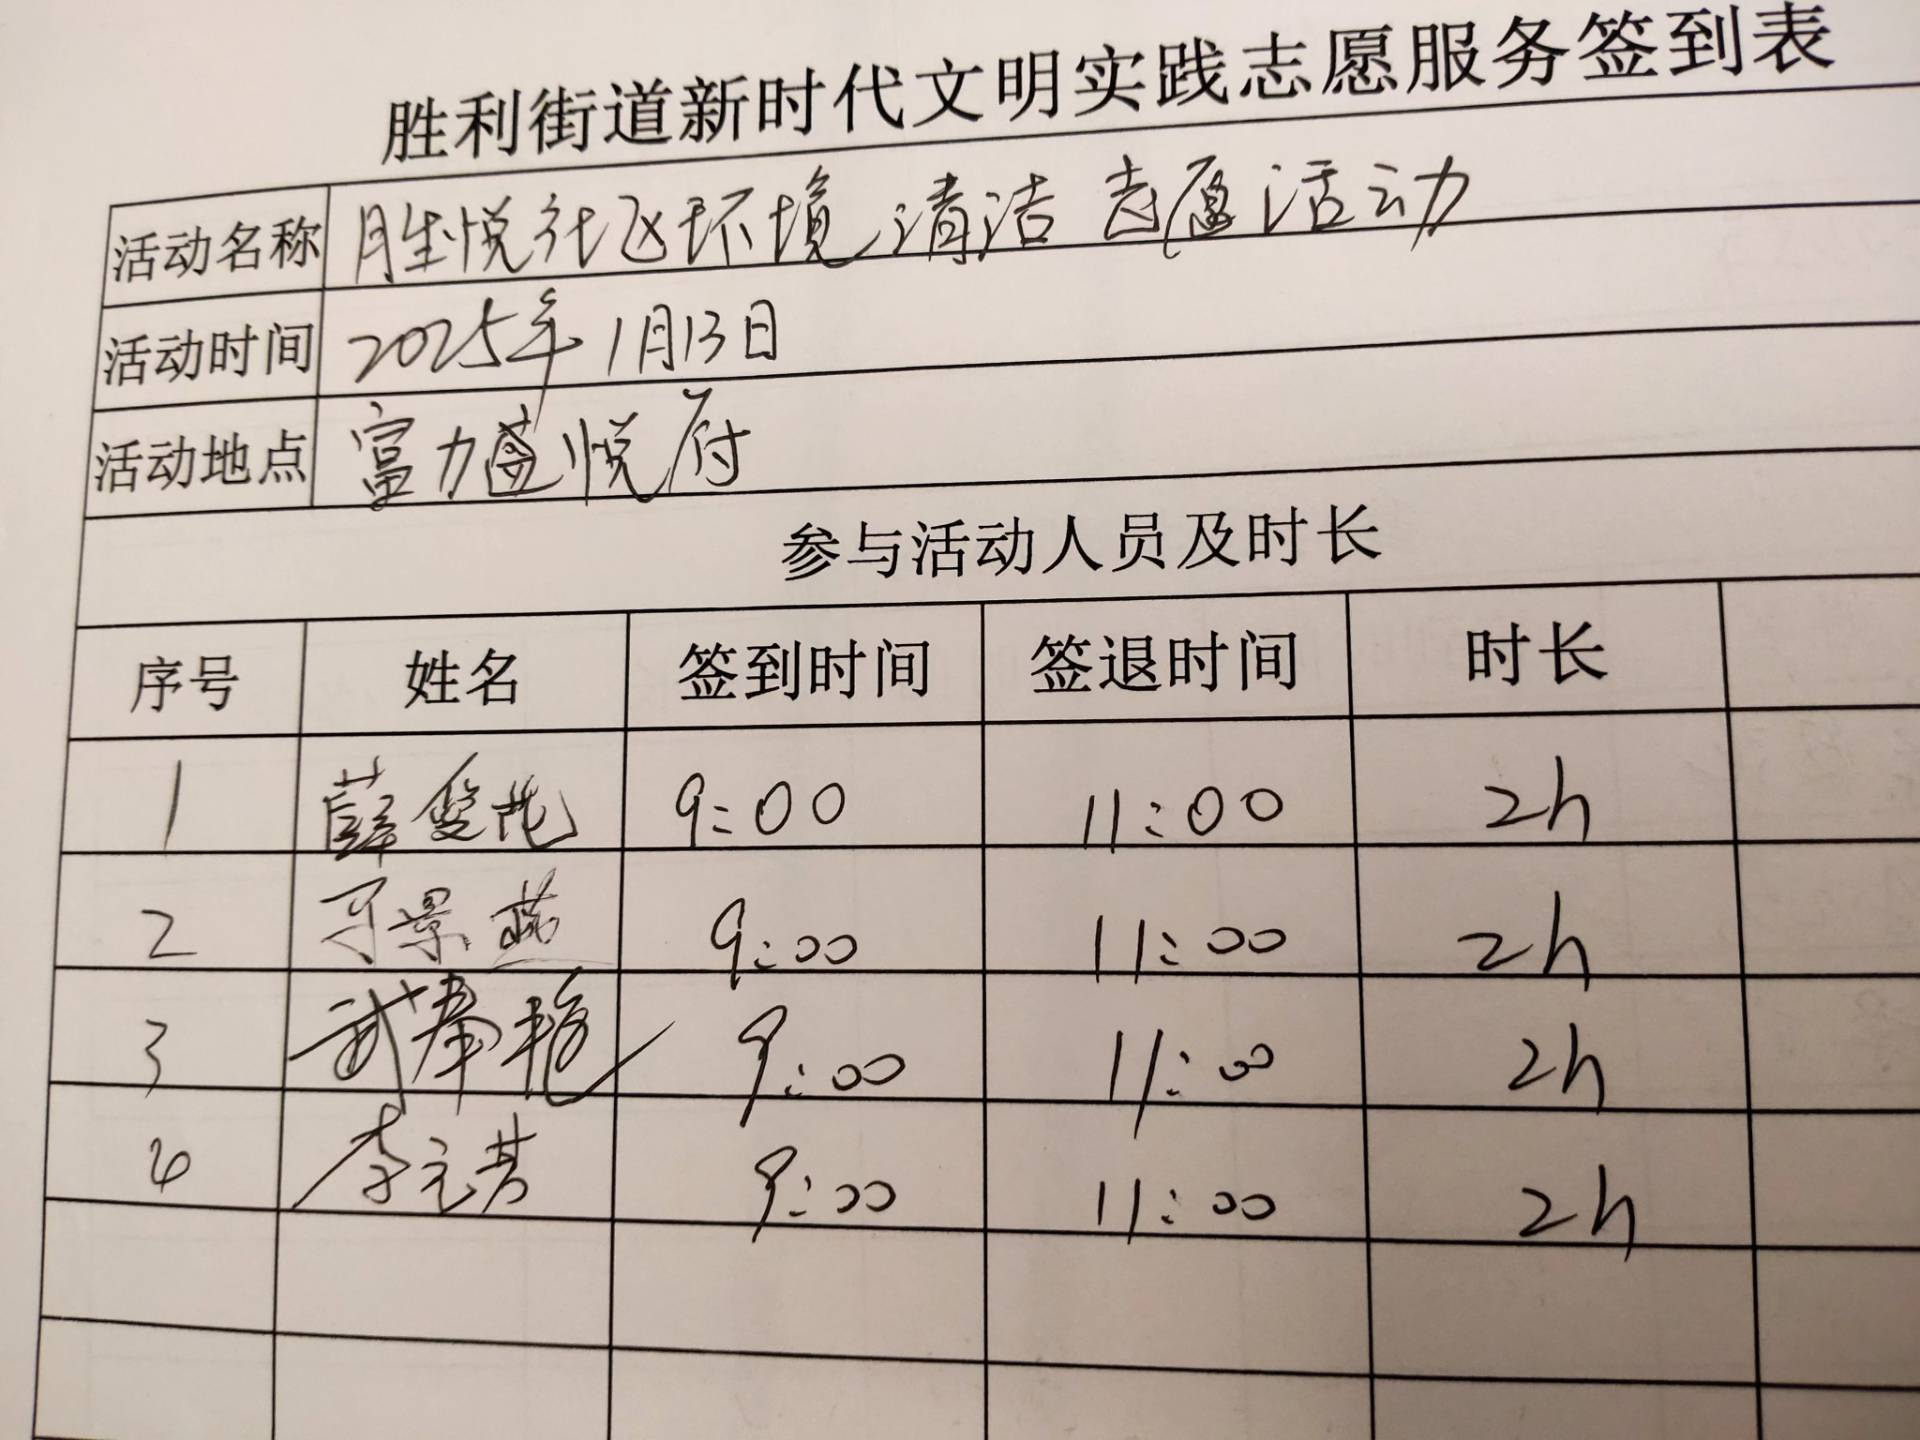 胜利街道新时代文明实践志愿服务签到表
活动名称 胜悦社区环境清洁志愿活动
活动时间 2025年1月13日
活动地点 富力盛悦府
参与活动人员及时长
序号 姓名 签到时间 签退时间 时长
1 薛 9:00 11:00 2h
2 于景燕 9:00 11:00 2h
3 武春艳 9:00 11:00 2h
4 李元芳 9:00 11:00 2h